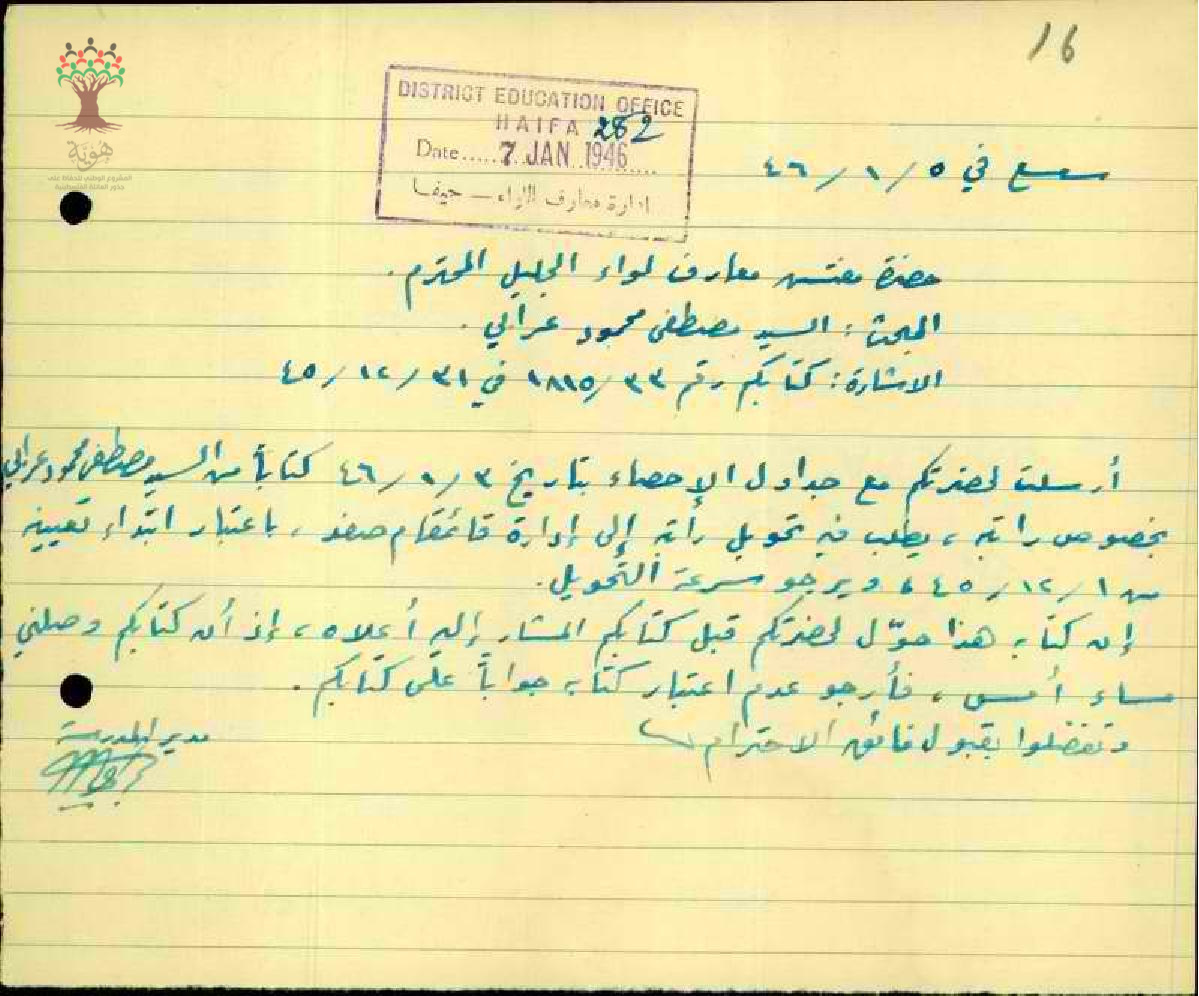 16
هوية
المشروع الوطني للحفاظ على
جذور العائلة الفلسطينية
DISTRICT EDUCATION OFFICE
HAIFA 282
Date..... 7 JAN 1946
ادارة معارف اللواء — حيفا
سعسع في ٥/١/٤٦
حضرة مفتش معارف لواء الجليل المحترم.
المبحث: السيد مصطفى محمود عرابي.
الاشارة: كتابكم رقم ٣٣/١٨١٥ في ٣١/١٢/٤٥
أرسلت لحضرتكم مع جداول الإحصاء بتاريخ ٣/١/٤٦ كتاباً من السيد مصطفى محمود عرابي
بخصوص راتبه، يطلب فيه تحويل راتبه إلى إدارة قائمقام صفد، باعتبار ابتداء تعيينه
من ١/١٢/٤٥، ويرجو سرعة التحويل.
إن كتابه هذا حوّل لحضرتكم قبل كتابكم المشار إليه أعلاه، إذ أن كتابكم وصلني
مساء أمس، فأرجو عدم اعتبار كتابه جواباً على كتابكم.
وتفضلوا بقبول فائق الاحترام
مدير المدرسة